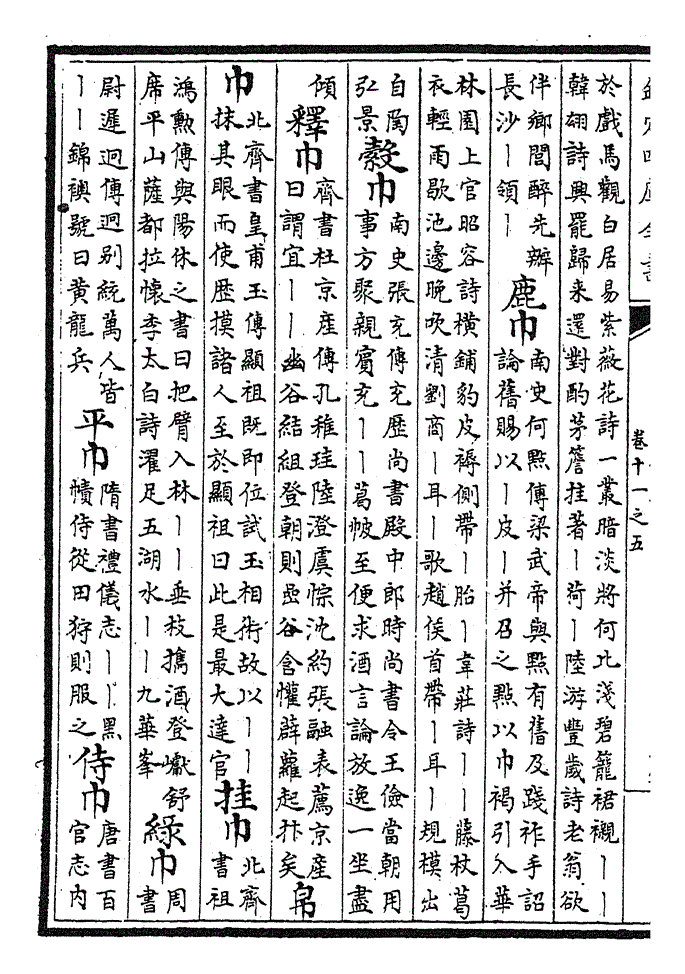 欽定四庫全書
卷十一之五
於戲馬觀白居易紫薇花詩一叢暗淡將何比淺碧籠裙襯丨丨
韓翃詩興罷歸来還對酌茅簷挂著丨荷丨陸游豐歲詩老翁欲
伴鄉閭醉先辦
長沙丨領丨
鹿巾
南史何㸃傳梁武帝與㸃有舊及踐祚手詔
論舊賜以丨皮丨并召之㸃以巾褐引入華
林園上官昭容詩横鋪豹皮褥側帶丨胎丨韋莊詩丨丨藤杖葛
衣輕雨歇池邊晚吹清劉商丨耳丨歌趙侯首帶丨耳丨規模出
自陶
弘景
縠巾
南史張充傳充歴尚書殿中郎時尚書令王儉當朝用
事方聚親賓充丨丨葛帔至便求酒言論放逸一坐盡
傾
釋巾
齊書杜京産傳孔稚珪陸澄虞悰沈約張融表薦京産
曰謂宜丨丨幽谷結組登朝則嵒谷含懽薜蘿起抃矣
帛
巾
北齊書皇甫玉傳顯祖既即位試玉相術故以丨丨
抹其眼而使歴摸諸人至於顯祖曰此是最大達官
挂巾
北齊
書祖
鴻勲傳與陽休之書曰把臂入林丨丨垂枝攜酒登巘舒
席平山薩都拉懷李太白詩濯足五湖水丨丨九華峯
緑巾
周
書
尉遲迥傳迥别統萬人皆
丨丨錦襖號曰黄龍兵
平巾
隋書禮儀志丨丨黑
幘侍從田狩則服之
侍巾
唐書百
官志内